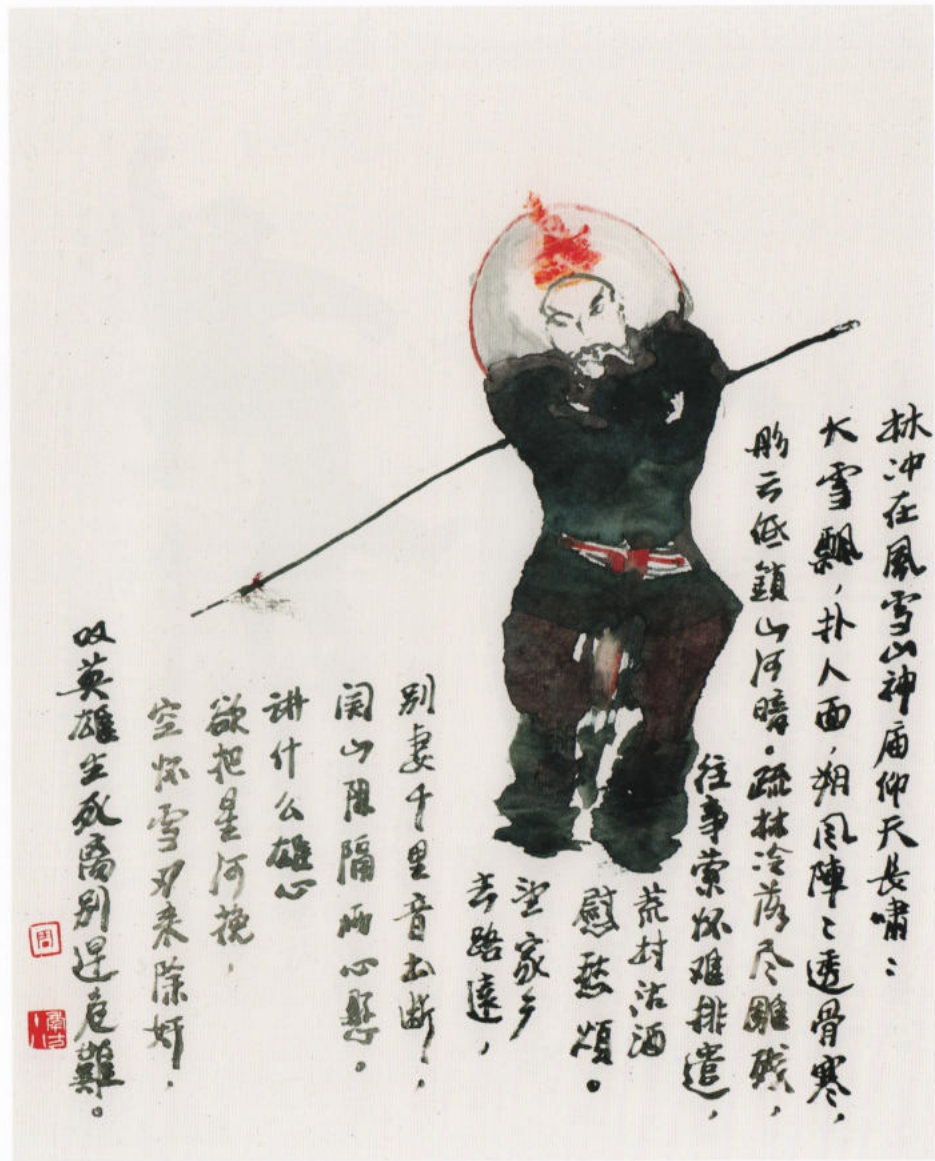 林冲在風雪山神庙仰天長嘯：
大雪飄，扑人面，朔风陣々透骨寒，
彤云低鎖山河暗。疏林冷落尽雕残，
往事萦怀难排遣，
荒村沽酒
慰愁煩。
望家乡
去路遠，
别妻千里音书断，
関山阻隔两心懸。
讲什么雄心
欲把星河挽，
空怀雪刃未除奸，
叹英雄生死离别遭危難。
周